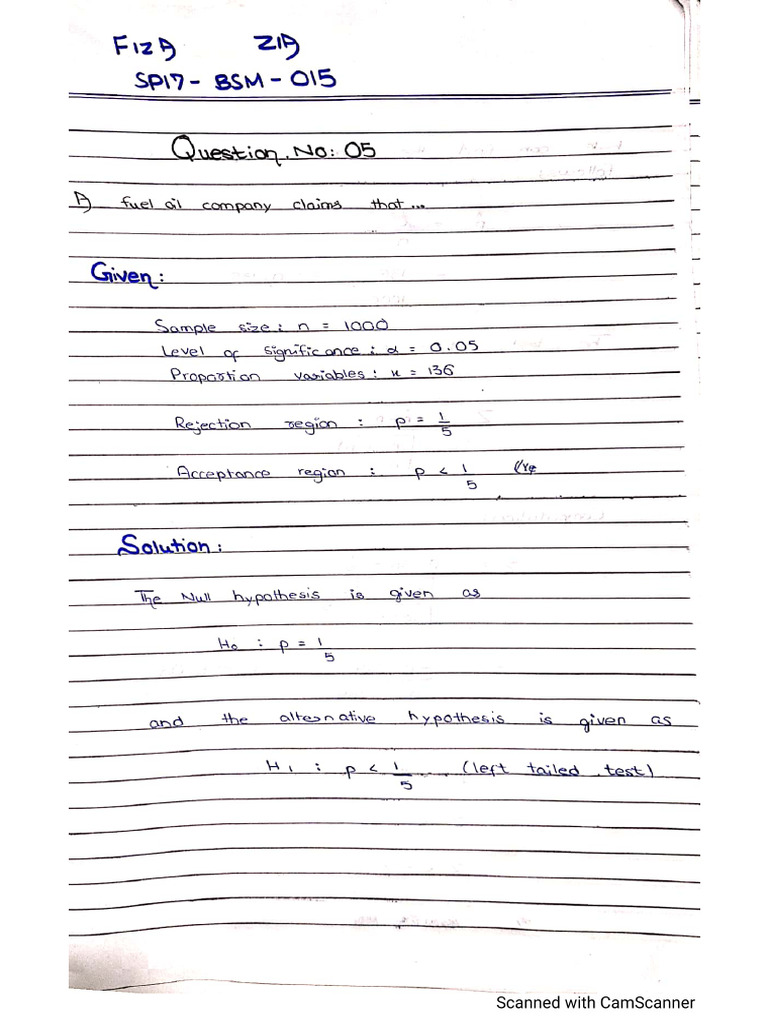 FIZA ZIA
SP17- BSM - 015
Question. No: 05
A fuel oil company claims that...
Given:
Sample size: n = 1000
Level of significance: α = 0.05
Proportion variables: x = 136
Rejection region : p = 1/5
Acceptance region : p < 1/5
Solution:
The Null hypothesis is given as
H₀ : p = 1/5
and the alternative hypothesis is given as
H₁ : p < 1/5 (left tailed test)
Scanned with CamScanner